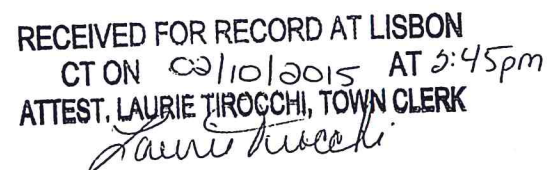 RECEIVED FOR RECORD AT LISBON
CT ON 02/10/2015 AT 2:45pm
ATTEST. LAURIE TIROCCHI, TOWN CLERK
Laurie Tirocchi